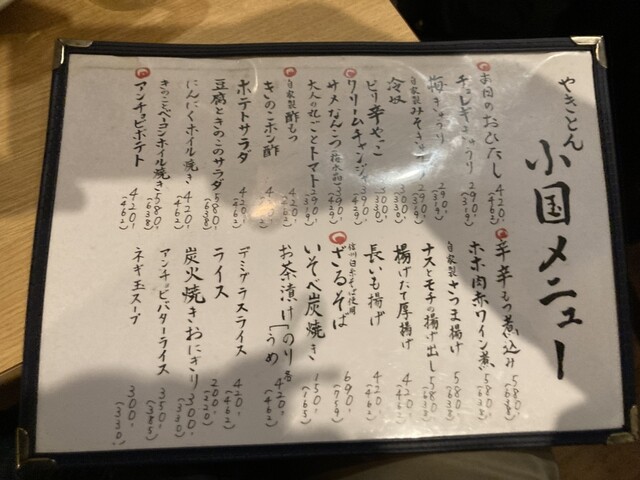 やきとん
小国メニュー
本日のおひたし 420.- (462)
チュレギきゅうり 290.- (319)
梅きゅうり 290.-
自家製みそきゅうり 290.- (319)
冷奴 300.- (330)
ピリ辛やっこ 300.- (330)
クリームチャンジャ 390.- (429)
サメなんこつ梅水晶 390.- (429)
大人の丸ごとトマト 290.- (319)
自家製 酢もつ 420.- (462)
きのこポン酢
ポテトサラダ 420.- (462)
豆腐ときのこのサラダ 580.- (638)
にんにくホイル焼き 420.- (462)
きのことベーコンホイル焼き 580.- (638)
アンチョビポテト 420.- (462)
辛辛もつ煮込み 580.- (638)
ホホ肉赤ワイン煮 580.- (638)
自家製 さつま揚げ 580.- (638)
ナスとモチの揚げ出し 580.- (638)
揚げたて厚揚げ 420.- (462)
長いも揚げ 420.- (462)
信州田舎そば使用
ざるそば 690.- (759)
いそべ炭焼き 150.- (165)
お茶漬け[のり うめ 各420.- (462)
デミグラスライス 420.- (462)
ライス 200.- (220)
炭火焼きおにぎり 300.-
アンチョビバターライス 350.- (385)
ネギ玉スープ 300.- (330)